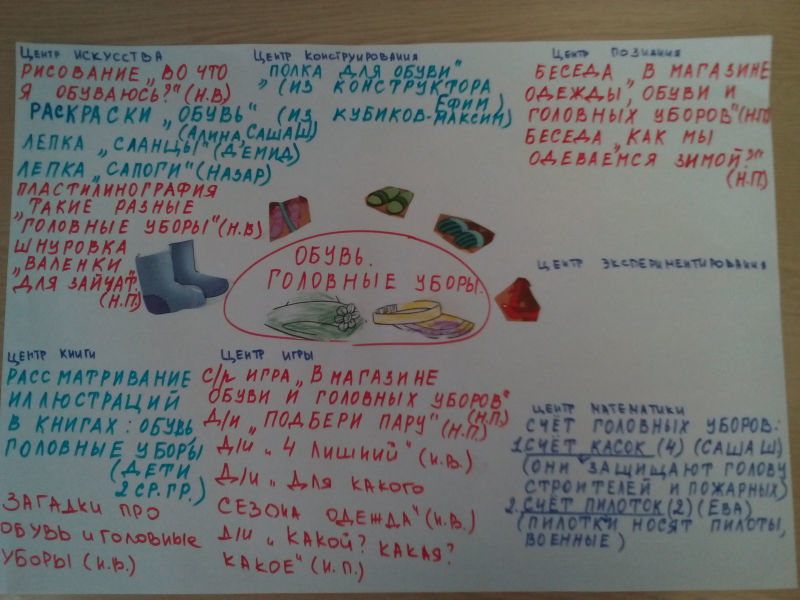 Центр искусства
Рисование „Во что
я обуваюсь?“ (Н.В)
Раскраски „Обувь“
(Алина, СашаШ)
Лепка „Сланцы“ (Демид)
Лепка „Сапоги“ (Назар)
Пластилинография
„Такие разные
головные уборы“ (Н.В)
Шнуровка
„Валенки
для зайчат.
(Н.П.)
Центр конструирования
„Полка для обуви“
(из конструктора
Ефим)
(из кубиков-Максим)
Центр познания
Беседа „В магазине
одежды, обуви и
головных уборов“ (Н.П)
Беседа „Как мы
одеваемся зимой?“
(Н.П.)
Обувь.
Головные уборы.
Центр экспериментирования
Центр книги
Рассматривание
иллюстраций
в книгах: обувь,
головные уборы
(дети
2 ср. гр.)
Загадки про
обувь и головные
уборы (Н.В.)
Центр игры
С/р игра „В магазине
обуви и головных уборов“
(Н.П.)
Д/и „Подбери пару“ (Н.П.)
Д/и „4 лишний“ (Н.В.)
Д/и „Для какого
сезона одежда“ (Н.В.)
Д/и „Какой? Какая?
Какое“ (Н.П.)
Центр математики
Счёт головных уборов:
1. Счёт касок (4) (СашаШ)
(они защищают голову
строителей и пожарных)
2. Счёт пилоток (2) (Ева)
(пилотки носят пилоты,
военные)